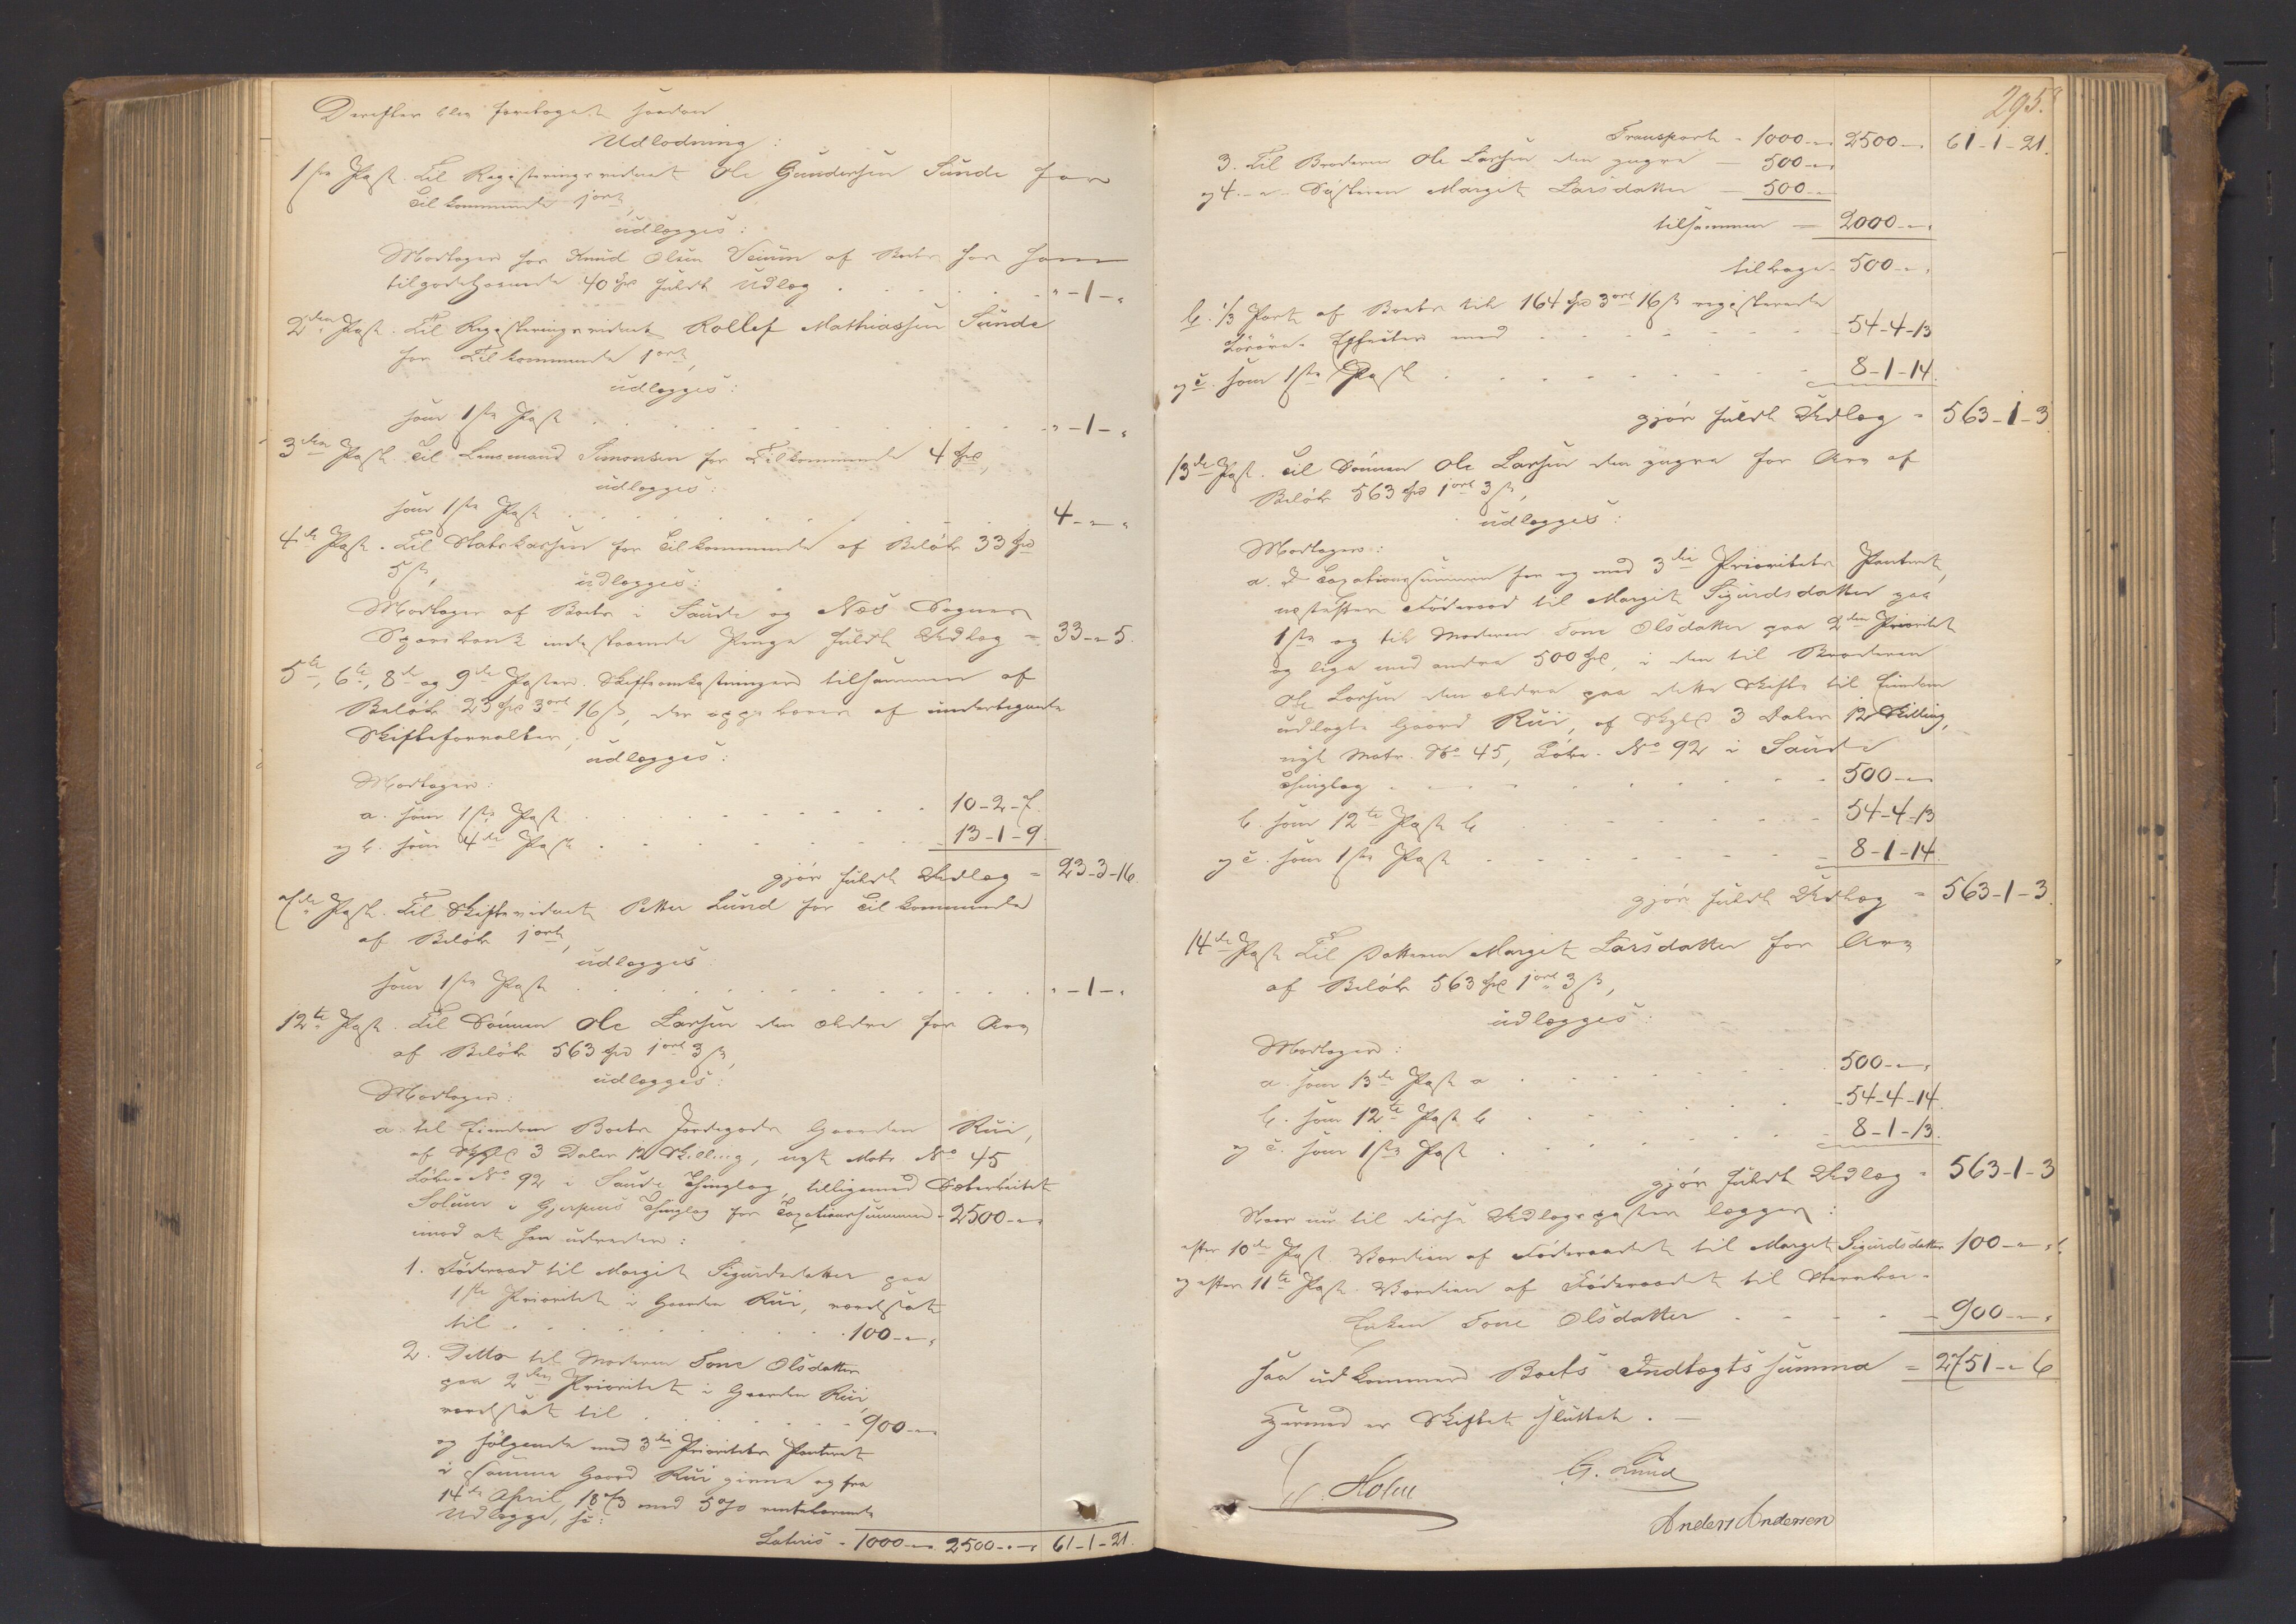 Derefter blev foretaget saadan
Udlodning:
1ste Post. Til Registeringsvidnet Ole Gundersen Sunde for
Tilkommende 1 ort,
udlægges:
Modtager hos Knud Olsen Veium af Boets hos ham
tilgodehavende 40 Spd fuldt Udlæg . . . . . . . " - 1 - "
2den Post. Til Registeringsvidnet Rollef Mathiassen Sunde
for Tilkommende 1 ort,
udlægges:
som 1ste Post . . . . . . . " - 1 - "
3die Post. Til Lensmand Simonsen for Tilkommende 4 Spd,
udlægges:
som 1ste Post . . . . . . . 4 - " - "
4de Post. Til Statskassen for Tilkommende af Beløb 33 Spd
5 ß,
udlægges:
Modtager af Boets i Saude og Næs Sognes
Sparebank indestaaende Penge fuldt Udlæg = 33 - " - 5.
5te, 6te, 8de og 9de Poster. Skifteomkostninger tilsammen af
Beløb 23 Spd 3 ort 16 ß, der oppebæres af undertegnede
Skifteforvalter,
udlægges:
Modtager:
a. som 1ste Post . . . . . . 10 - 2 - 7.
og b. som 4de Post . . . . . . 13 - 1 - 9.
gjør fuldt Udlæg = 23 - 3 - 16.
7de Post. Til Skiftevidnet Petter Lund for Tilkommende
af Beløb 1 ort,
udlægges
som 1ste Post . . . . . . . " - 1 - "
12te Post. Til Sønnen Ole Larsen den ældre for Arv
af Beløb 563 Spd 1 ort 3 ß,
udlægges:
Modtager:
a. til Eiendom Boets Jordegods Gaarden Rui,
af Skyld 3 Daler 12 Skilling, nyt Matr. No 45
Løbe-No 92 i Saude Thinglag, tilligemed Sæterbeitet
Solum i Gjerpens Thinglag for Taxationssummen - 2500 - " - "
imod at han udreder:
1. Føderaad til Margit Sigurdsdatter paa
1ste Prioritet i Gaarden Rui, værdsat
til . . . . . . 100 - " - "
2. Ditto til Moderen Tone Olsdatter
paa 2den Prioritet i Gaarden Rui,
værdsat til . . . . . 900 - " - "
og følgende med 3die Prioritets Panteret
i samme Gaard Rui givne og fra
14de April 1873 med 5 % rentebærende
Udlægge, så:
Lateris - 1000 - " - " 2500 - " - " 61 - 1 - 21.
295.
Transport - 1000 - " - " 2500 - " - " 61 - 1 - 21.
3. Til Broderen Ole Larsen den yngre — 500 - " - "
og 4. - " - Søsteren Margit Larsdatter — 500 - " - "
tilsammen — 2000 - " - "
tilbage - 500 - " - "
b. 1/3 Part af Boets til 164 Spd 3 ort 16 ß registerede
Løsøre-Effecter med . . . . . 54 - 4 - 13
og c. som 1ste Post . . . . . . 8 - 1 - 14.
gjør fuldt Udlæg = 563 - 1 - 3.
13de Post. Til Sønnen Ole Larsen den yngre for Arv af
Beløb 563 Spd 1 ort 3 ß,
udlægges:
Modtager:
a. I Taxationssummen for og med 3die Prioritets Panteret,
næstefter Føderaad til Margit Sigurdsdatter paa
1ste og til Moderen Tone Olsdatter paa 2den Prioritet
og lige med andre 500 Spd, i den til Broderen
Ole Larsen den ældre paa dette Skifte til Eiendom
udlagte Gaard Rui, af Skyld 3 Daler 12 Skilling,
nyt Matr. No 45, Løbe-No 92 i Saude
Thinglag . . . . . . 500 - " - "
b. som 12te Post b . . . . . 54 - 4 - 13
og c. som 1ste Post . . . . . 8 - 1 - 14.
gjør fuldt Udlæg = 563 - 1 - 3.
14de Post. Til Datteren Margit Larsdatter for Arv
af Beløb 563 Spd 1 ort 3 ß,
udlægges:
Modtager:
a. som 13de Post a . . . . . 500 - " - "
b. som 12te Post b . . . . . 54 - 4 - 14.
og c. som 1ste Post . . . . . 8 - 1 - 13.
gjør fuldt Udlæg = 563 - 1 - 3
Naar nu til disse Udlægsposter lægges:
efter 10de Post Værdien af Føderaadet til Margit Sigurdsdatter 100 - " - "
og efter 11te Post Værdien af Føderaadet til Stervbo-
Enken Tone Olsdatter . . . . . 900 - " - "
saa udkommer Boets Indtægts summa = 2751 - " - 6
Hermed er Skiftet sluttet. —
Holm
G. Lund
Anders Andersen